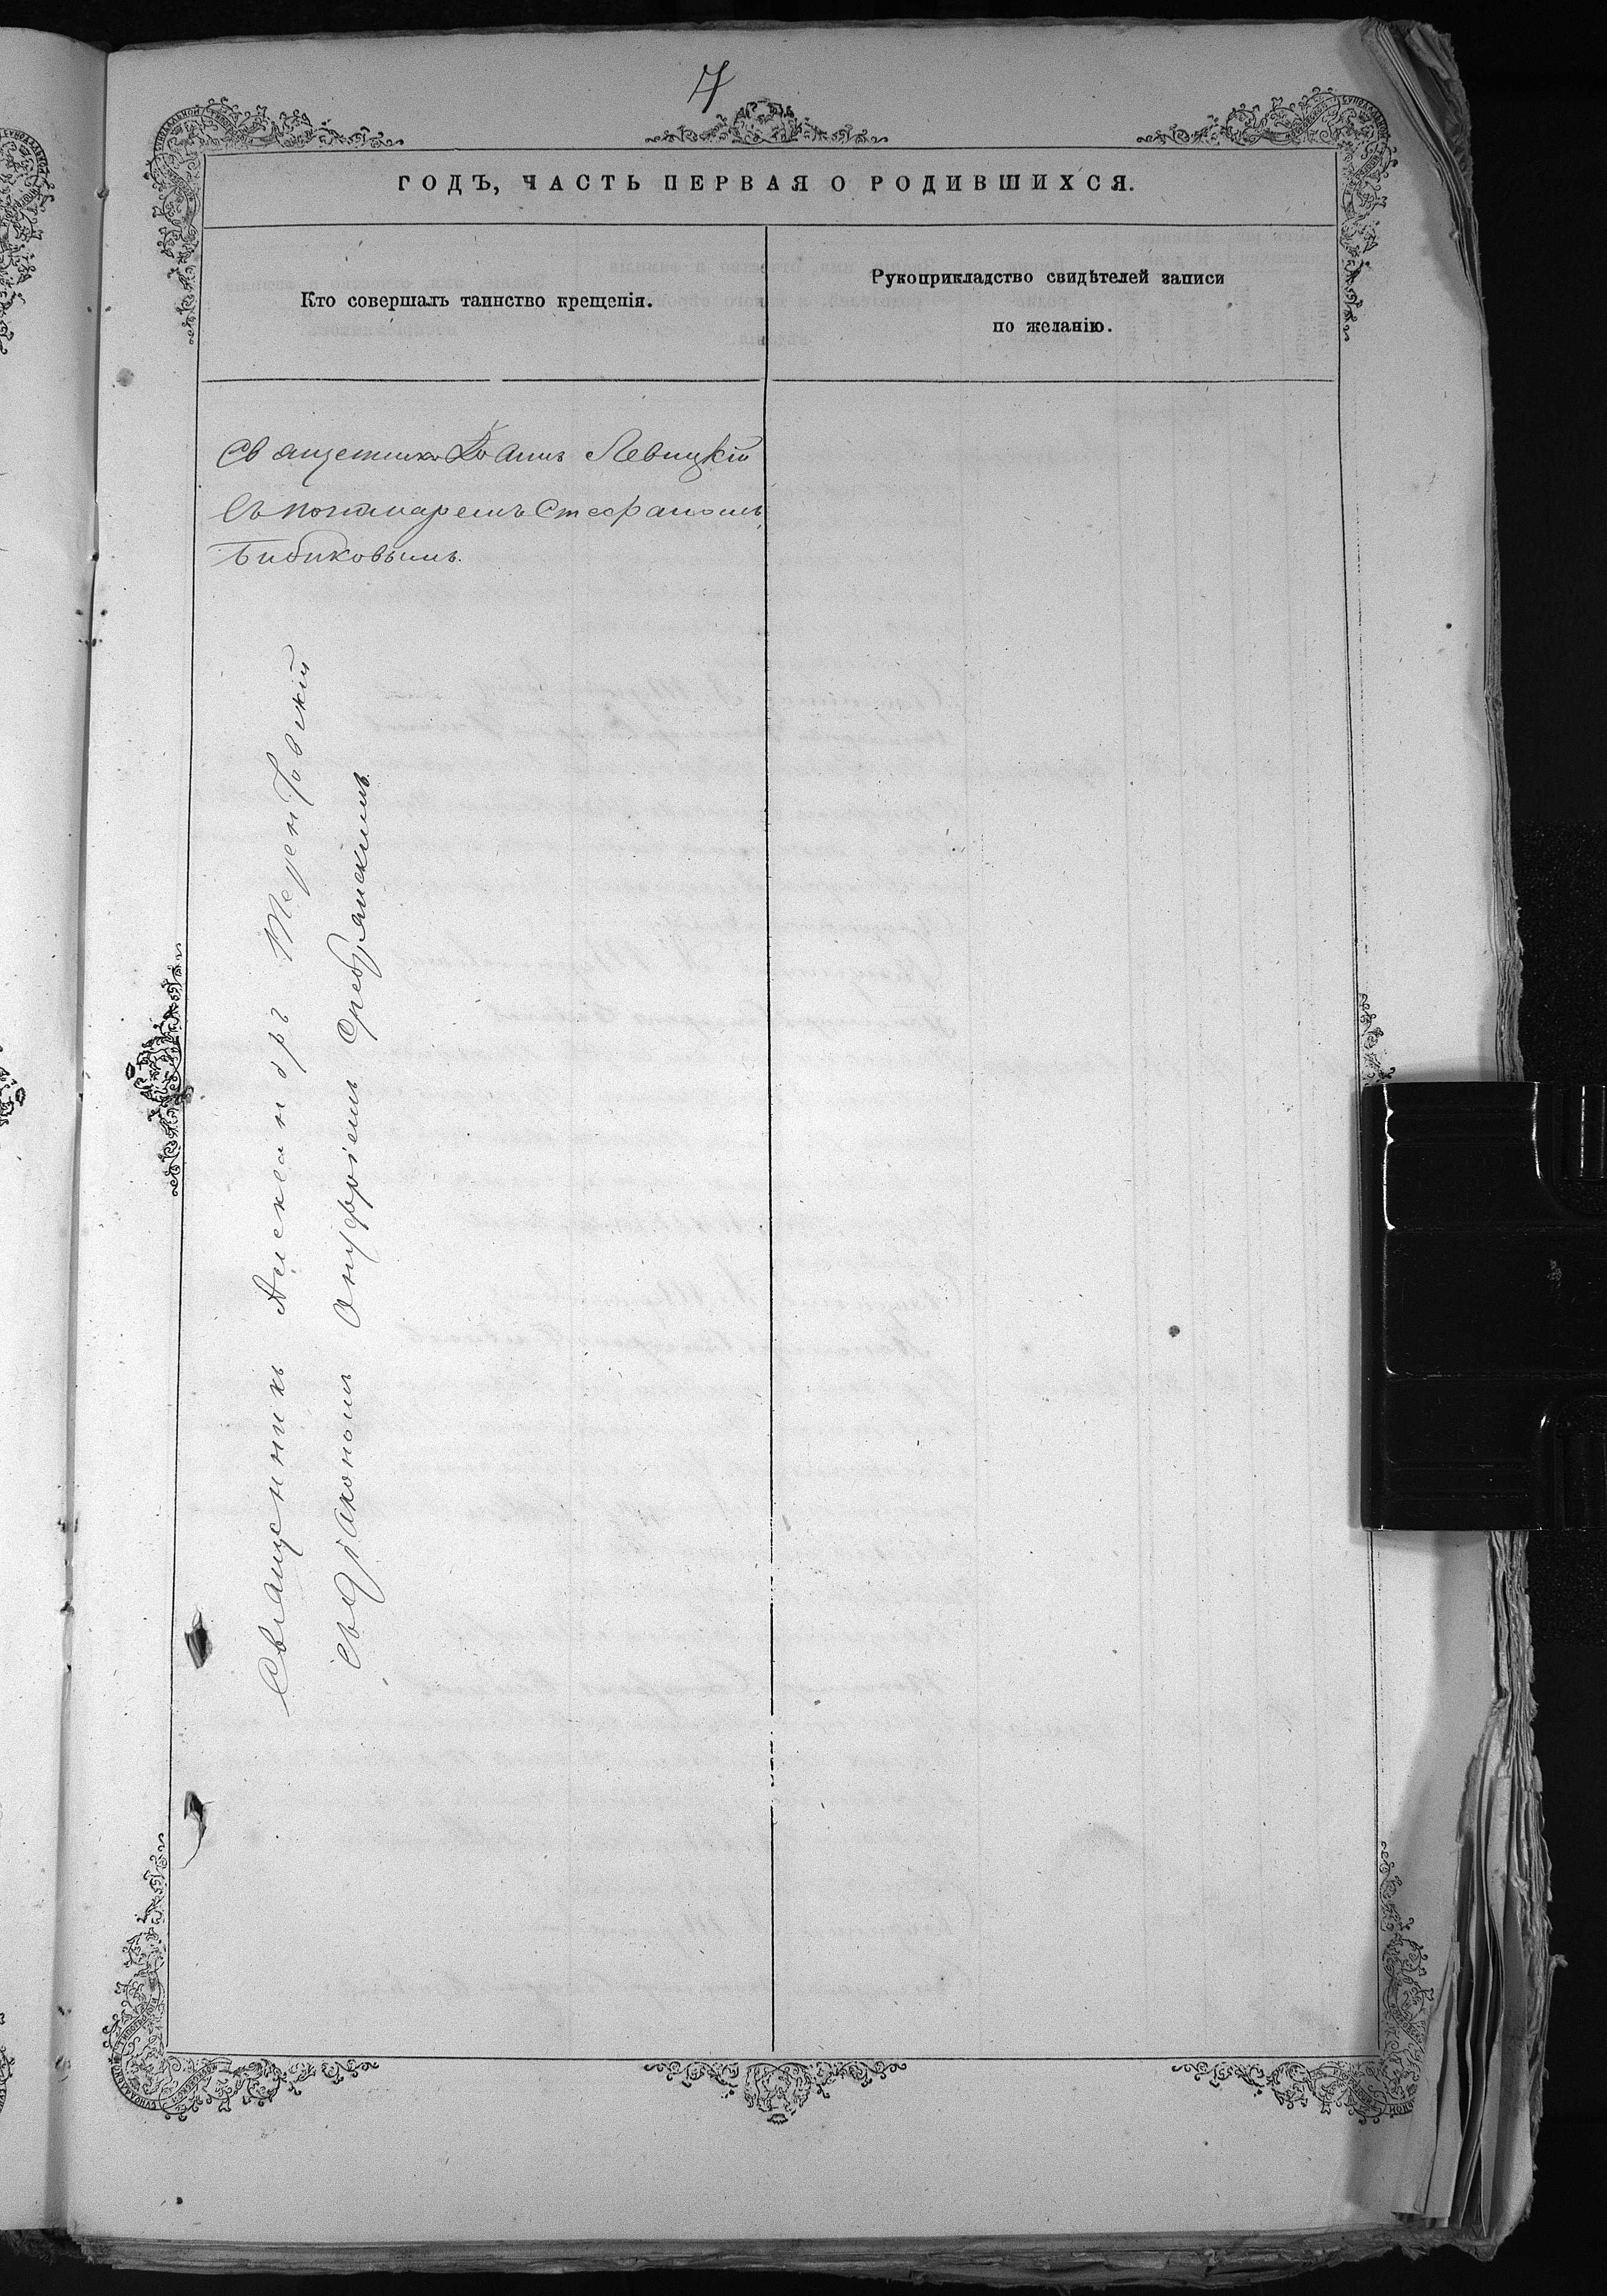 7
ГОДЪ, ЧАСТЬ ПЕРВАЯ О РОДИВШИХСЯ.
Кто совершалъ таинство крещенія.
Рукоприкладство свидѣтелей записи
по желанію.
Священникъ Іоаннъ Левицкій
съ пономаремъ Стефаномъ
Бибиковымъ.
Священникъ Александръ Терентовскій
съ діакономъ Онуфріемъ Сребрянскимъ